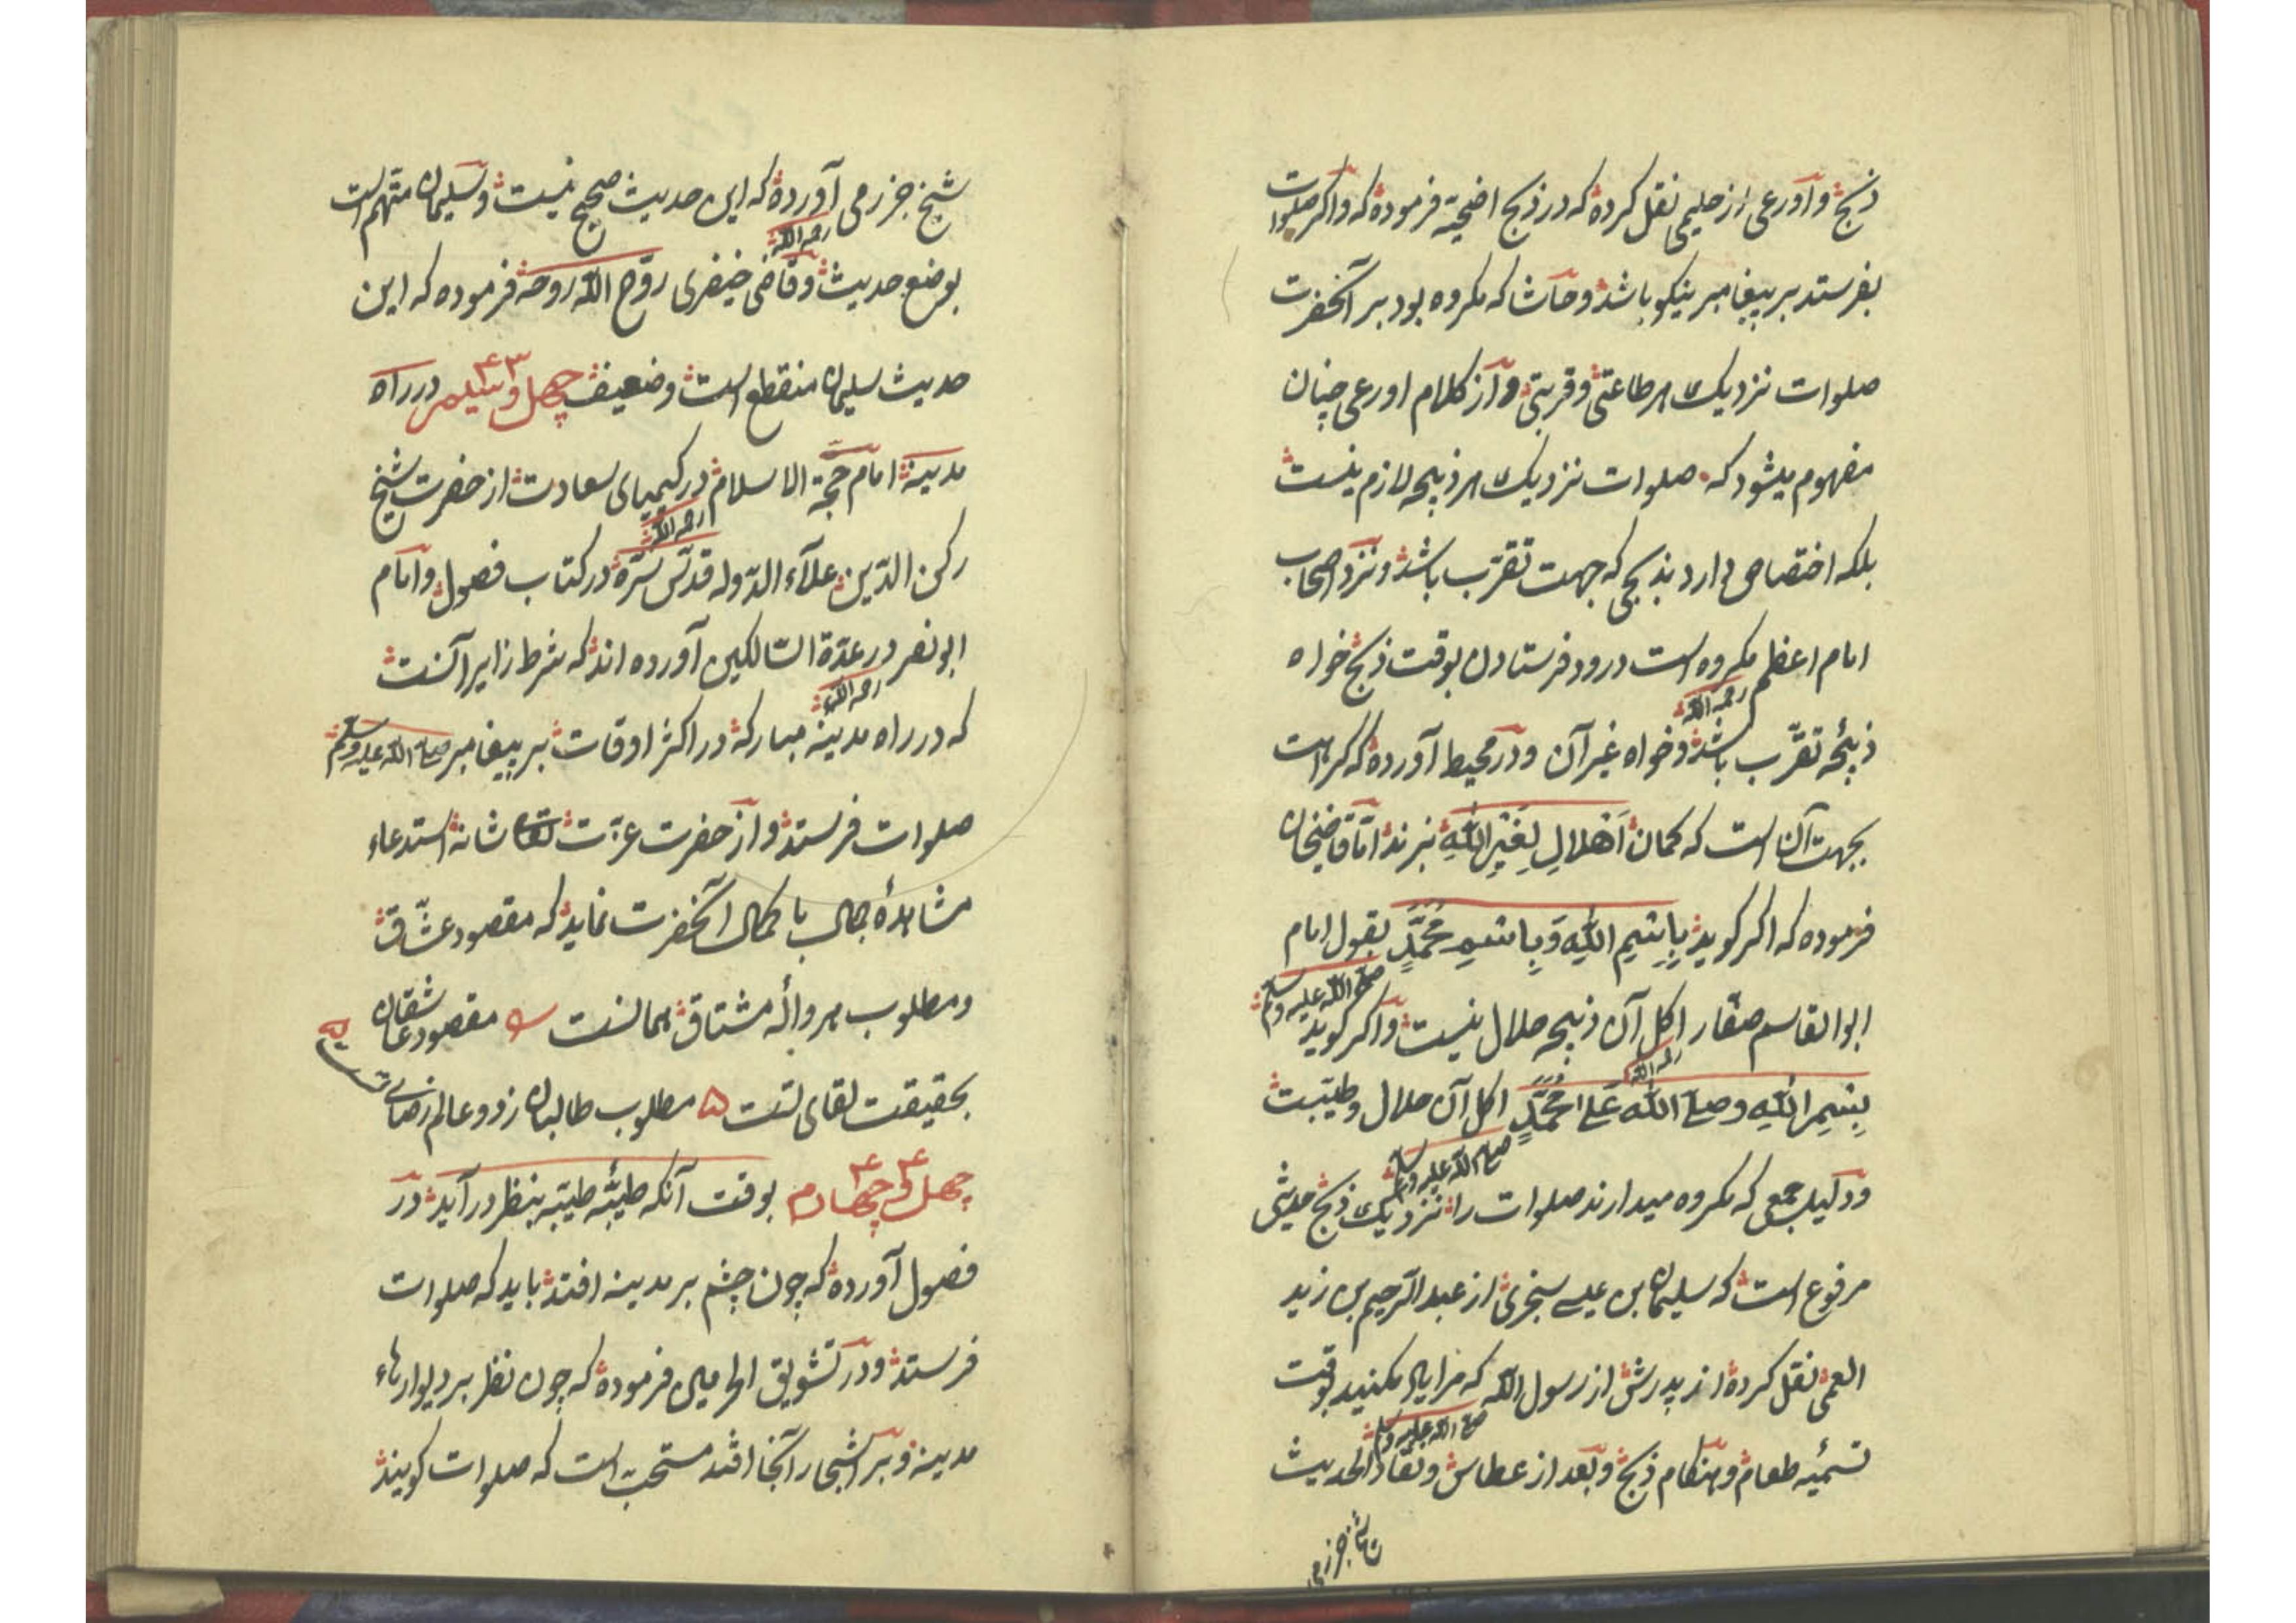 ذبح و اورعی از حلیمی نقل کرده که در ذبح اضحیة فرموده که و اکر صلوات
بفرستد بر پیغامبر نیکو باشد و حاشا که مکروه بود بر آنحضرت
صلوات نزدیک هر طاعتی و قربتی و از کلام اورعی چنان
مفهوم میشود که صلوات نزدیک هر ذبیحه لازم نیست
بلکه اختصاص دارد بذبحی که جهت تقرّب باشد و نزد اصحاب
امام اعظم رحمه الله مکروه است درود فرستادن بوقت ذبح خواه
ذبیحهٔ تقرّب باشد و خواه غیر آن و در محیط آورده که کراهت
بجهت آن است که کمان اَهْلالِ لِغَیْرِ اللّٰهِ نبرند امّا قاضیخان
فرموده که اکر کوید بِاِسْمِ اللّٰهِ وَ بِاسْمِ مُحَمَّدٍ صلی الله علیه وسلم بقول امام
ابو القاسم صفّار رحمه الله اکل آن ذبیحه حلال نیست و اکر کوید
بِسْمِ اللّٰهِ وصلی اللّٰه عَلی مُحَمَّدٍ صلی الله علیه وسلم اکل آن حلال و طیّبست
و دلیل جمعی که مکروه میدارند صلوات را نزدیک ذبح حدیثی
مرفوع است که سلیمان بن عیسی سنجری از عبد الرّحیم بن زید
العمّی نقل کرده از پدرش از رسول اللّه صلی الله علیه وسلم که مرا یاد مکنید بوقت
تسمیهٔ طعام و هنکام ذبح و بعد از عطاس و نقّاد الحدیث
شیخ جزرمی آورده که این حدیث صحیح نیست و سلیمان متّهم است
بوضع حدیث و قاضی خیضری رحمه الله روّح اللّه روحه فرموده که این
حدیث سلیمان منقطع است و ضعیف چهل و سیلم ۴۳ در راه
مدینه امام حجّة الاسلام در کیمیای سعادت از حضرت شیخ
رکن الدّین علآء الدّوله قدّس سرّه رحمه الله در کتاب فصول و امام
ابو نصر در عدّة السّالکین آورده اند که شرط زایر آنست
که در راه مدینه مبارکه در اکثر اوقات بر پیغامبر صلی الله علیه وسلم
صلوات فرستد و از حضرت عزّت شانه استدعاء
مشاهدهٔ جمال با کمال آنحضرت نماید که مقصود عشّاق
و مطلوب هر واله مشتاق همانست مقصود عاشقان
بحقیقت لقای تست مطلوب طالبان ز دو عالم رضای تست
چهل و چهارم ۴۴ بوقت آنکه طیبهٔ طیّبه بنظر درآید در
فصول آورده که چون چشم بر مدینه افتد باید که صلوات
فرستد و در تشویق الحرمین فرموده که چون نظر بر دیوارهاء
مدینه و بر اشجار آنجا افتد مستحب است که صلوات کویند